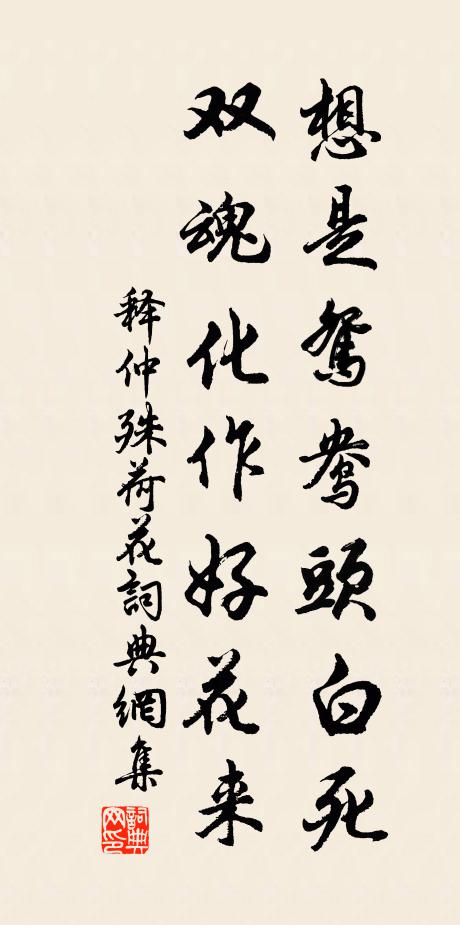 想是鸳鸯頭白死
双魂化作好花来
释仲殊荷花詞典網集
詞典网印